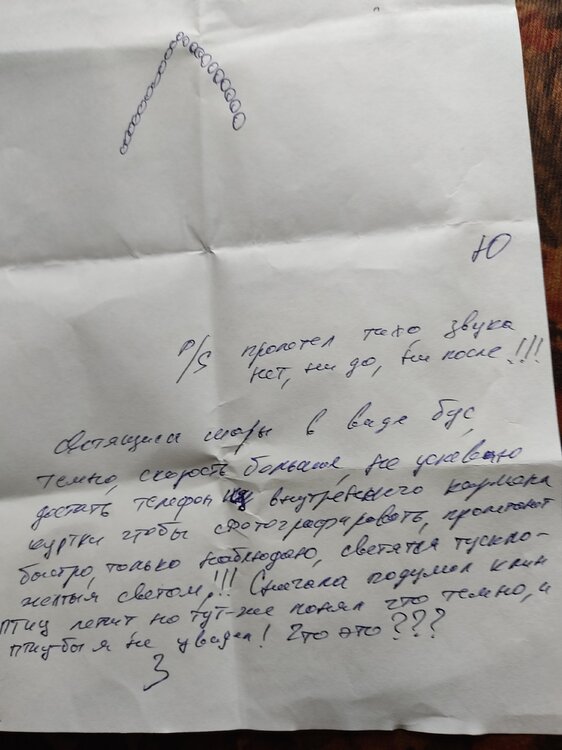 Ю
P/S пролетел тихо звука
нет, ни до, ни после!!!
Светящиися шары в виде бус,
темно, скорость большая, не успеваю
достать телефон из внутреннего кармана
куртки чтобы сфотографировать, пролетают
быстро, только наблюдаю, светятся тускло-
желтым светом!!! Сначала подумал клин
птиц летит но тут-же понял что темно, и
птиц бы я не увидел! Что это???
З